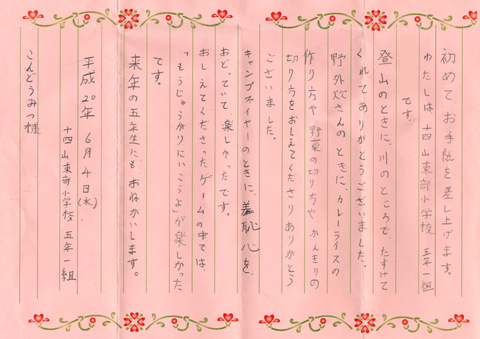 初めてお手紙を差し上げます。
わたしは十四山東部小学校五年一組
です。
登山のときに、川のところでたすけて
くれてありがとうございました。
野外炊さんのときに、カレーライスの
作り方や野菜の切り方や、かんきりの
切り方をおしえてくださりありがとう
ございました。
キャンプファイヤーのときに、羞恥心を
おどっていて楽しかったです。
おしえてくださったゲームの中では
「もうじゅうがりにいこうよ」が楽しかった
です。
来年の五年生にもおねがいします。
平成20年6月4日(水)
十四山東部小学校 五年一組
こんどうみつ様